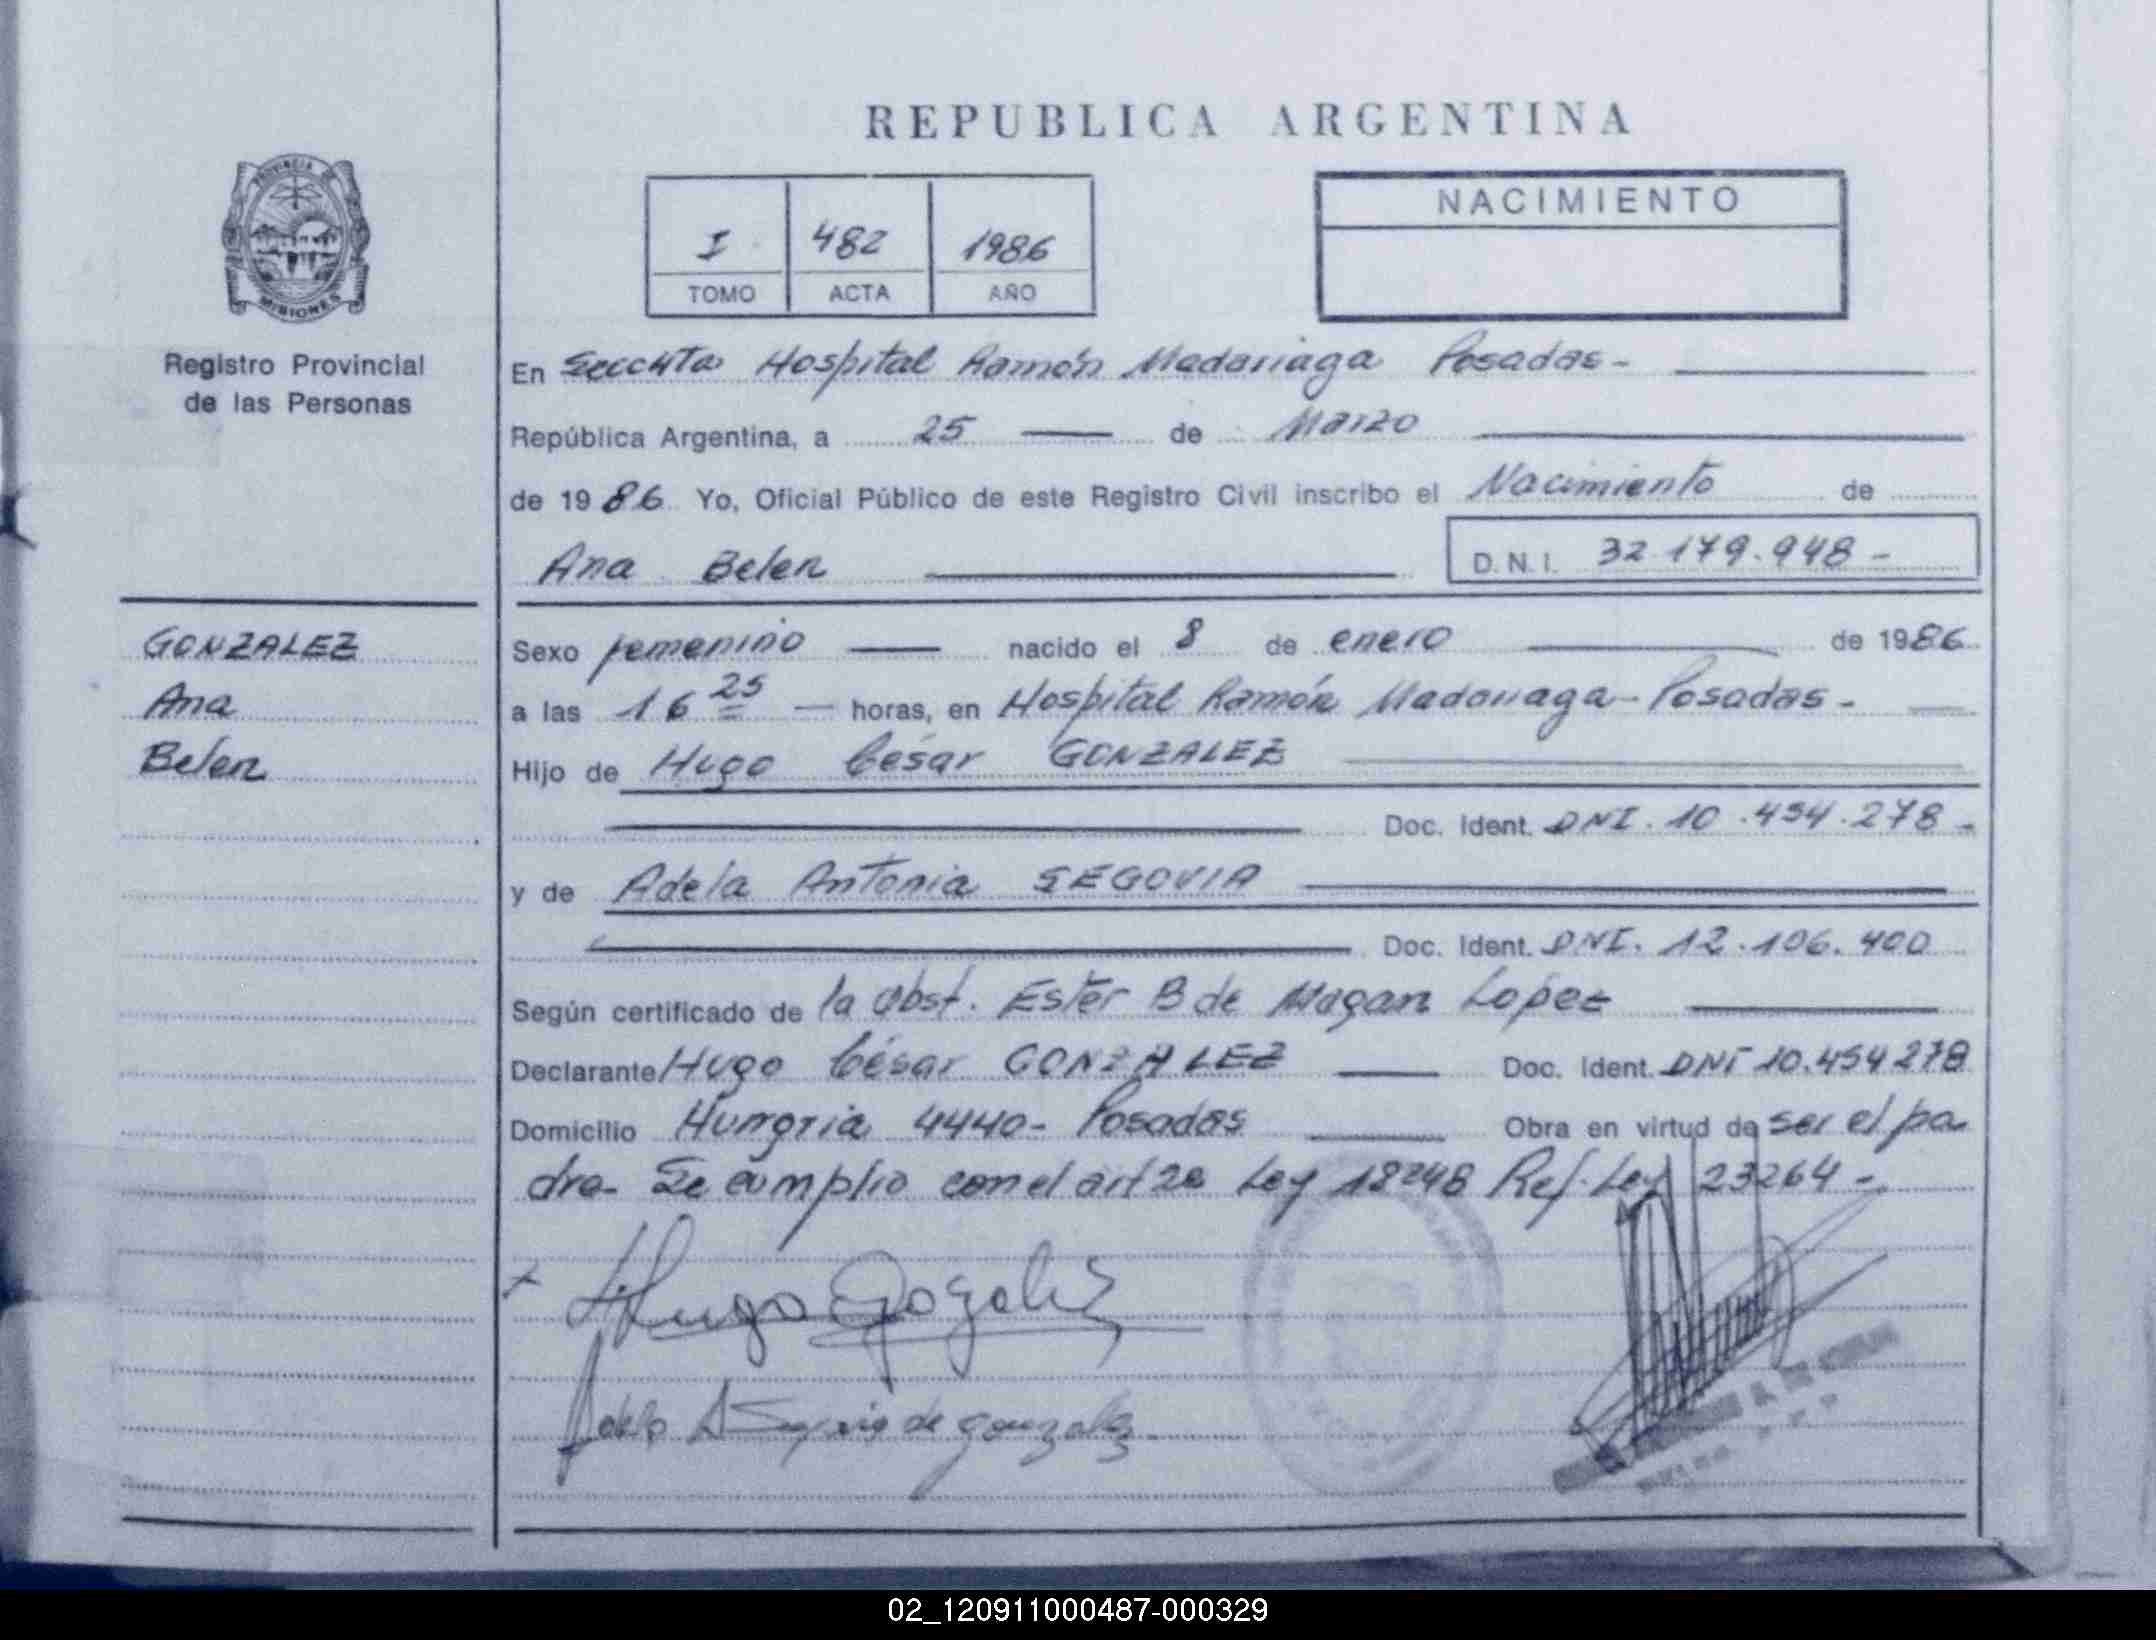 REPUBLICA ARGENTINA
PROVINCIA DE
MISIONES
Registro Provincial
de las Personas
I 482 1986
TOMO ACTA AÑO
NACIMIENTO
En Hospital Ramón Madariaga Posadas-
República Argentina, a 25 de Marzo
de 1986 Yo, Oficial Público de este Registro Civil inscribo el Nacimiento de
Ana Belen D.N.I. 32.179.948-
GONZALEZ
Ana
Belen
Sexo femenino nacido el 8 de enero de 1986
a las 16 25 horas, en Hospital Ramón Madariaga-Posadas-
Hijo de Hugo César GONZALEZ
Doc. Ident. DNI. 10.454.278-
y de Adela Antonia SEGOVIA
Doc. Ident. DNI. 12.106.400
Según certificado de la obst. Ester B de Magan Lopez
Declarante Hugo César GONZALEZ Doc. Ident. DNI 10.454278
Domicilio Hungria 4440- Posadas Obra en virtud de ser el pa
dre- Se cumplio con el art 2o Ley 18248 Ref. Ley 23264-
Hugo Gozalez
Adela A Segovia de gonzalez
02_120911000487-000329